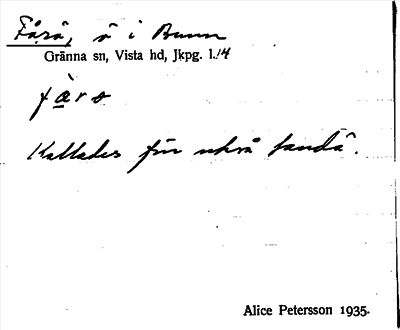 Fårö, ö i Bunn
Gränna sn, Vista hd, Jkpg. l. 14
Kallades för också Sandö.
Alice Petersson 1935.